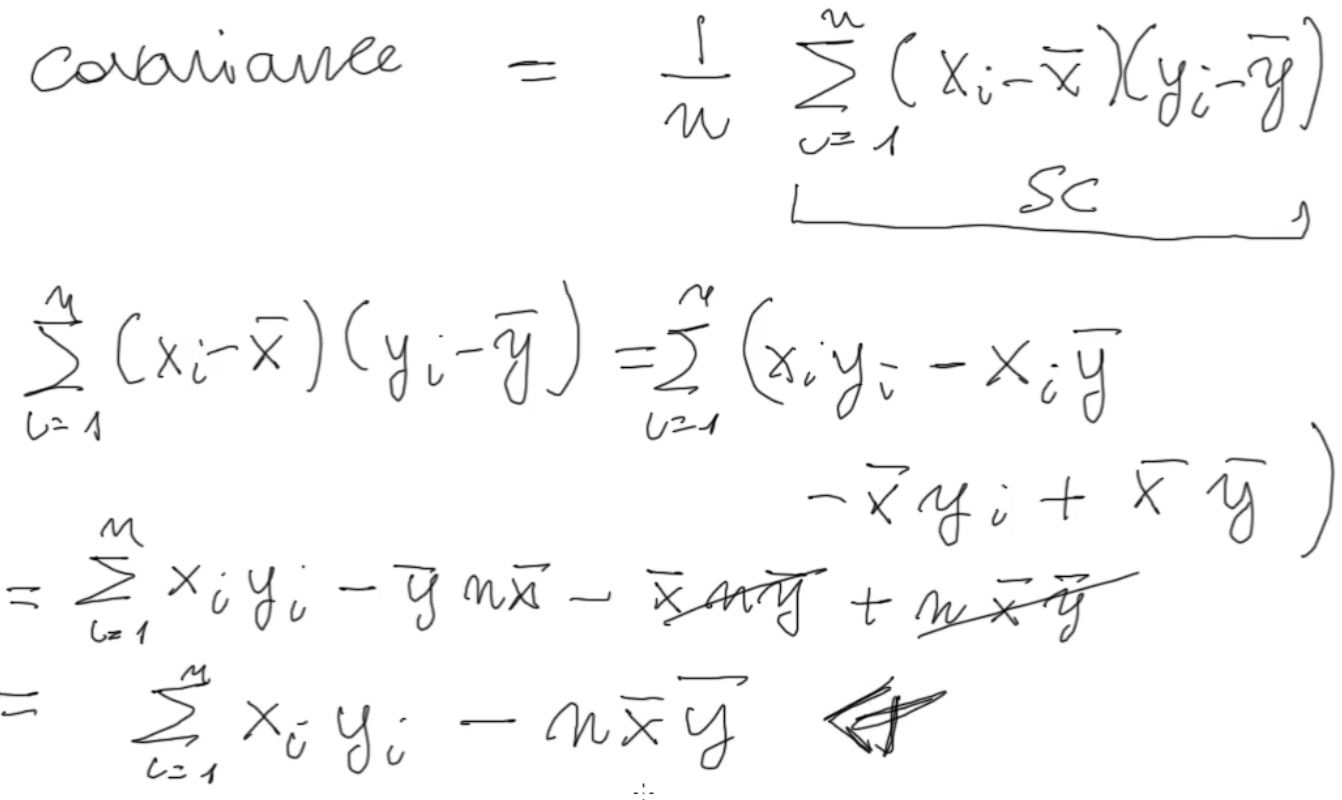 covariance = 1/n ∑_{i=1}^{n} (xᵢ - x̄)(yᵢ - ȳ)
SC
∑_{i=1}^{n} (xᵢ - x̄)(yᵢ - ȳ) = ∑_{i=1}^{n} (xᵢyᵢ - xᵢȳ
- x̄yᵢ + x̄ȳ)
= ∑_{i=1}^{n} xᵢyᵢ - ȳnx̄ - x̄nȳ + nx̄ȳ
= ∑_{i=1}^{n} xᵢyᵢ - nx̄ȳ